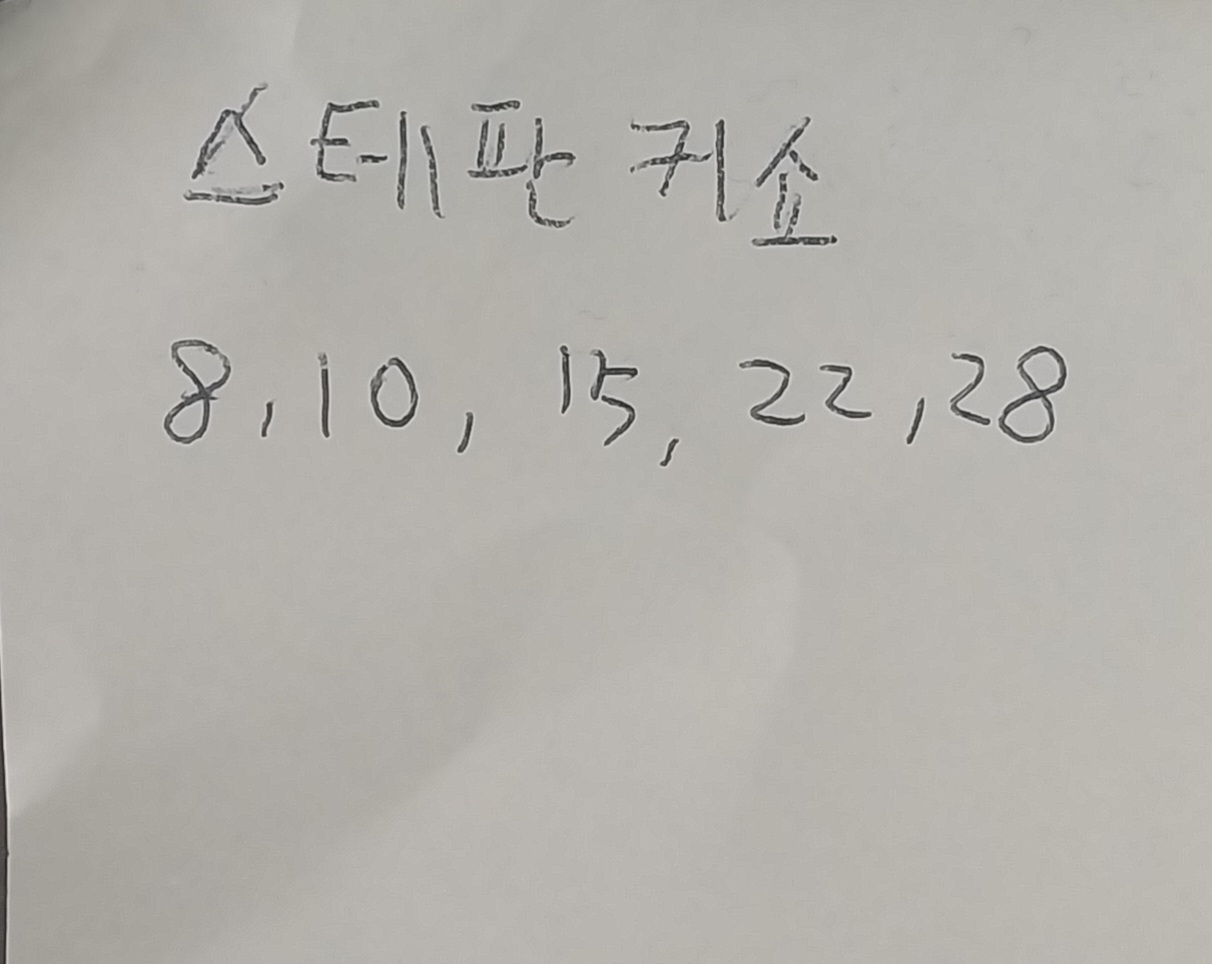 스테판 커쇼
8, 10, 15, 22, 28